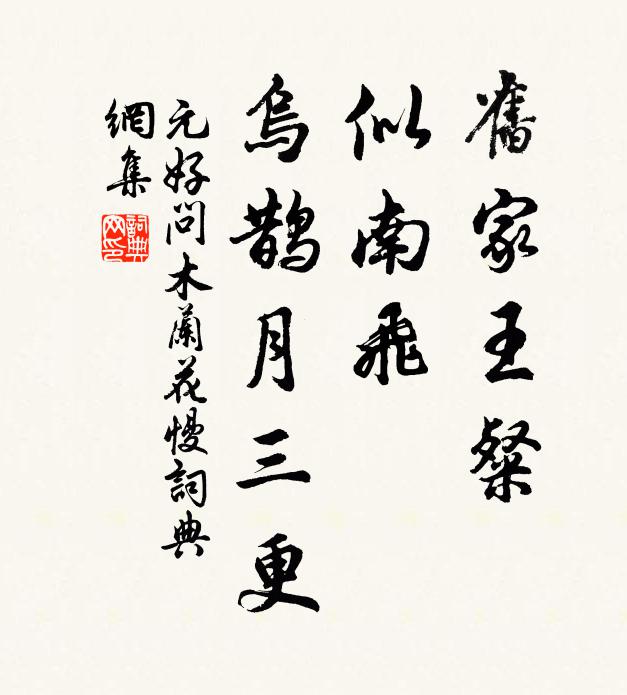 舊家王粲
似南飛
烏鵲月三更
元好問木蘭花慢詞典
網集
詞典
网印